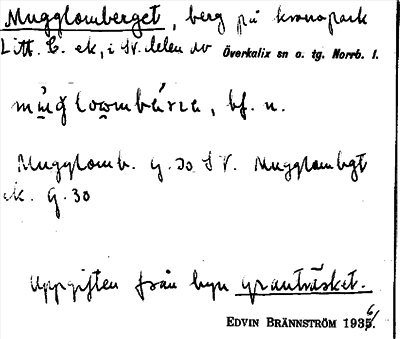 Mugglomberget, berg på kronopark
Litt. C. ek, i SV. delen av Överkalix sn o. tg. Norrb. l.
bf. n.
Mugglomb. G. 30 SV. Mugglombgt
ek. G. 30
Uppgiften från byn Granträsket.
EDVIN BRÄNNSTRÖM 1936